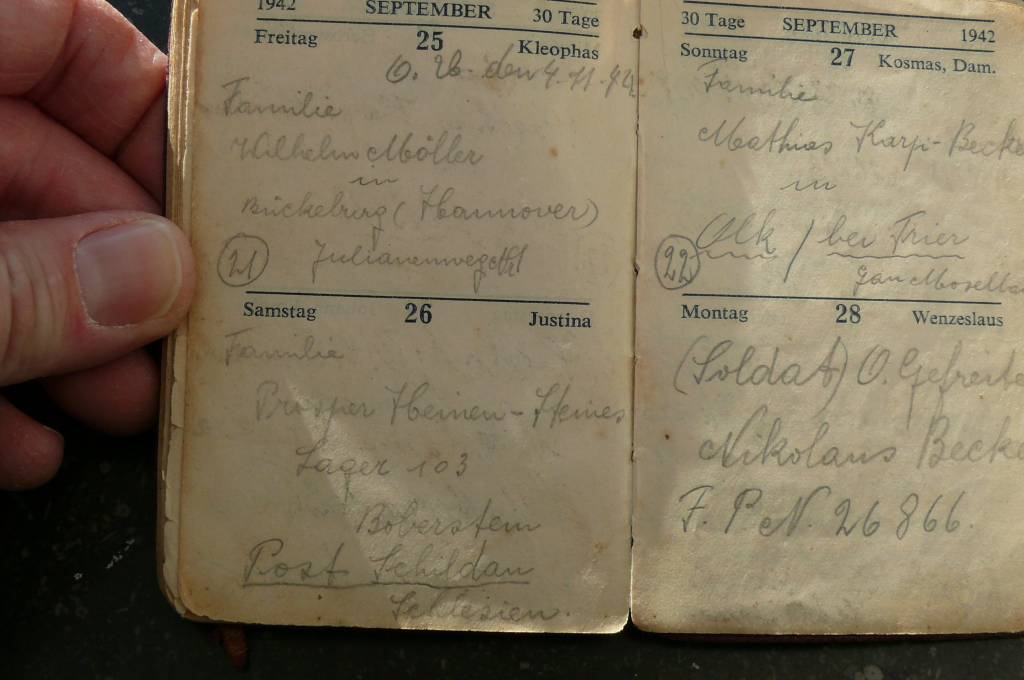 1942 SEPTEMBER 30 Tage
Freitag 25 Kleophas
O. U. den 4.11.42
Familie
Wilhelm Möller
in
Bückeburg (Hannover)
21 Julianenweg
Samstag 26 Justina
Familie
Prosper Heinen-Steines
Lager 103
Boberstein
Post Schildau
Schlesien.
30 Tage SEPTEMBER 1942
Sonntag 27 Kosmas, Dam.
Familie
Mathias Karp-Becke
in
22 Olk / bei Trier
Gau Mosella
Montag 28 Wenzeslaus
(Soldat) O. Gefreite
Nikolaus Becke
F. P. N. 26866.